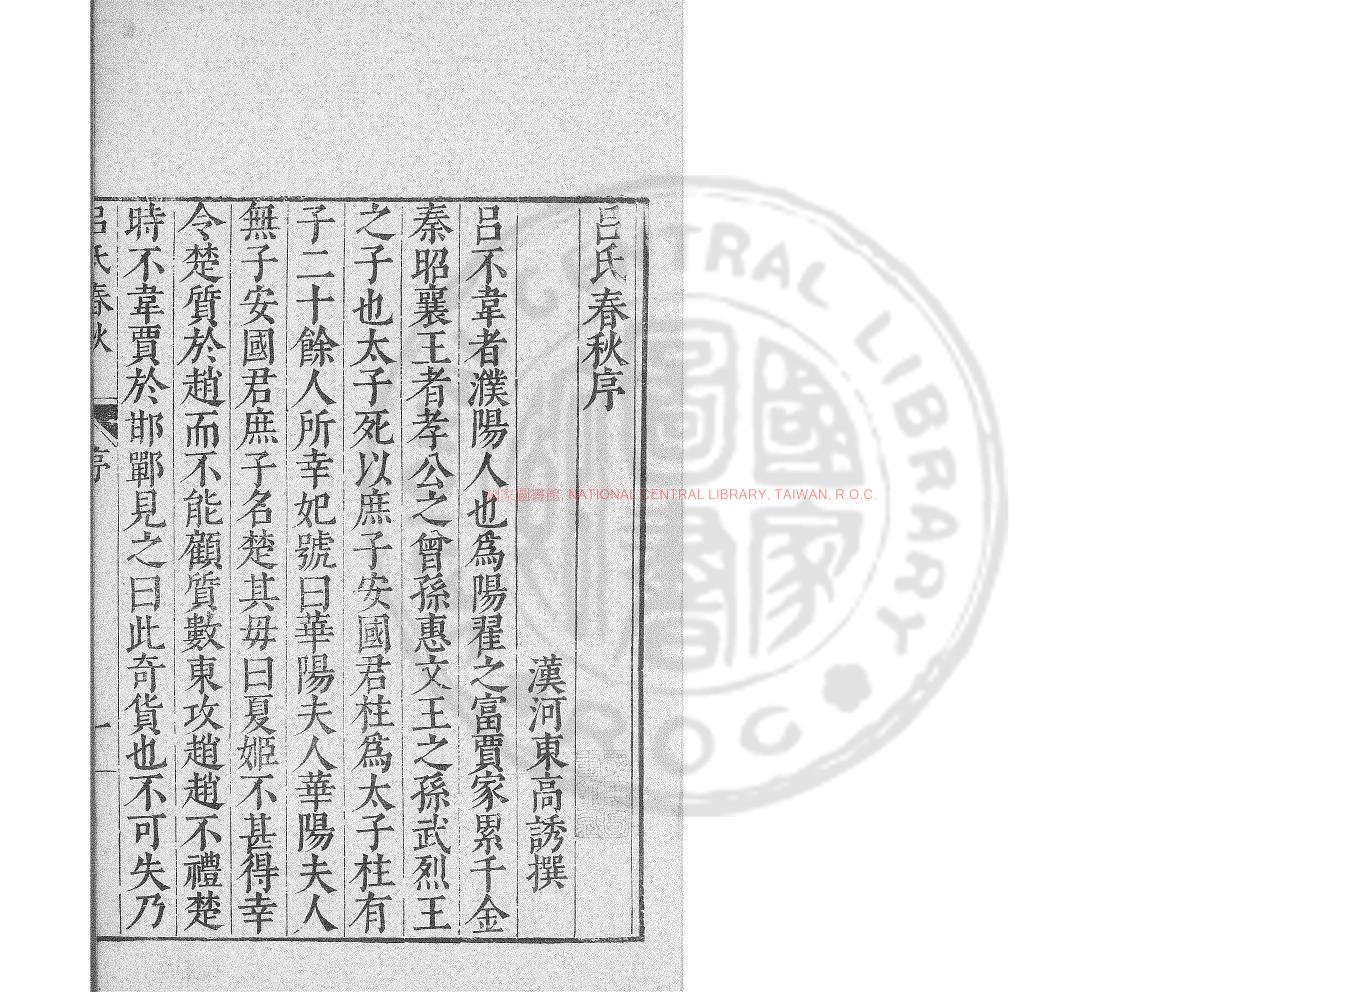 呂氏春秋序
漢河東高誘撰
呂不韋者濮陽人也為陽翟之富賈家累千金
秦昭襄王者孝公之曾孫惠文王之孫武烈王
之子也太子死以庶子安國君柱為太子柱有
子二十餘人所幸妃號曰華陽夫人華陽夫人
無子安國君庶子名楚其毋曰夏姬不甚得幸
令楚質於趙而不能顧質數東攻趙趙不禮楚
時不韋賈於邯鄲見之曰此奇貨也不可失乃
呂氏春秋 序 一
國家圖書館, NATIONAL CENTRAL LIBRARY, TAIWAN, R.O.C.
NATIONAL CENTRAL LIBRARY
R.O.C.
國家圖書館